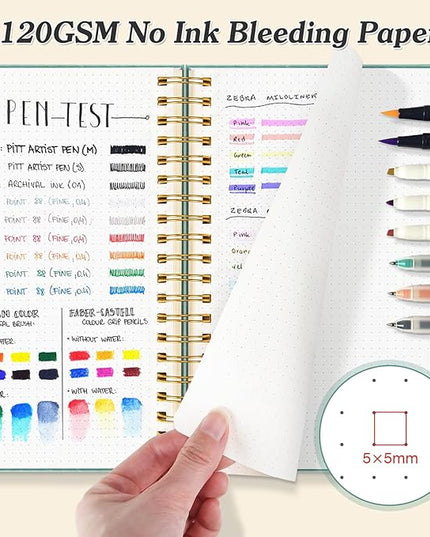 120GSM No Ink Bleeding Paper
PEN-TEST
: PITT ARTIST PEN (M)
PITT ARTIST PEN (S)
ARCHIVAL INK (01)
POINT 88 (FINE, 0.4)
POINT 88 (FINE, 0.4)
POINT 88 (FINE, 0.4)
POINT 88 (FINE, 0.4)
POINT 88 (FINE, 0.4)
POINT 88 (FINE, 0.4)
COLOR
BRUSH:
FABER-CASTELL
COLOUR GRIP PENCILS
• WITHOUT WATER:
• WITH WATER:
ZEBRA MILDLINER
Pink
Red
Green
Teal
Purple
ZEBRA
Pink
5×5mm